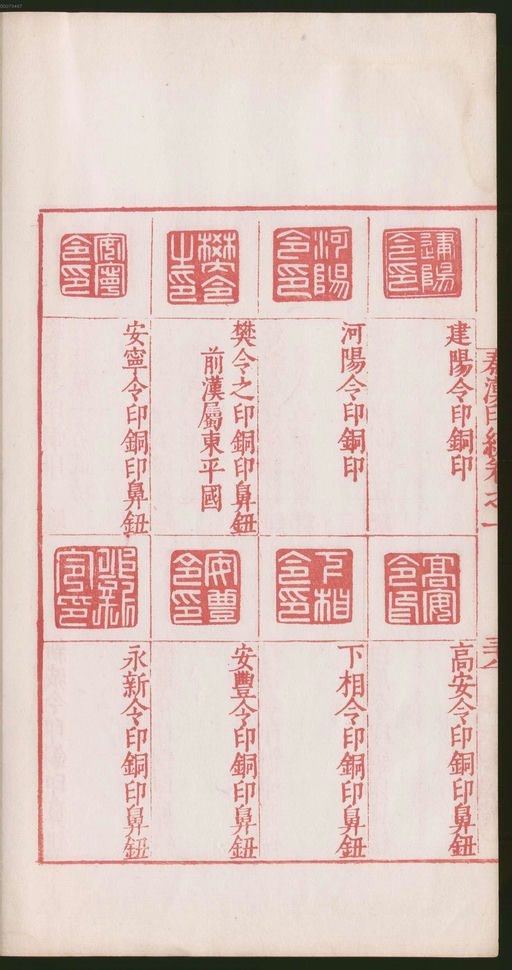 建陽令印
建陽令印銅印
河陽令印
河陽令印銅印
樊令之印
樊令之印銅印鼻鈕
前漢屬東平國
安寧令印
安寧令印銅印鼻鈕
高安令印
高安令印銅印鼻鈕
下相令印
下相令印銅印鼻鈕
安豐令印
安豐令印銅印鼻鈕
永新令印
永新令印銅印鼻鈕